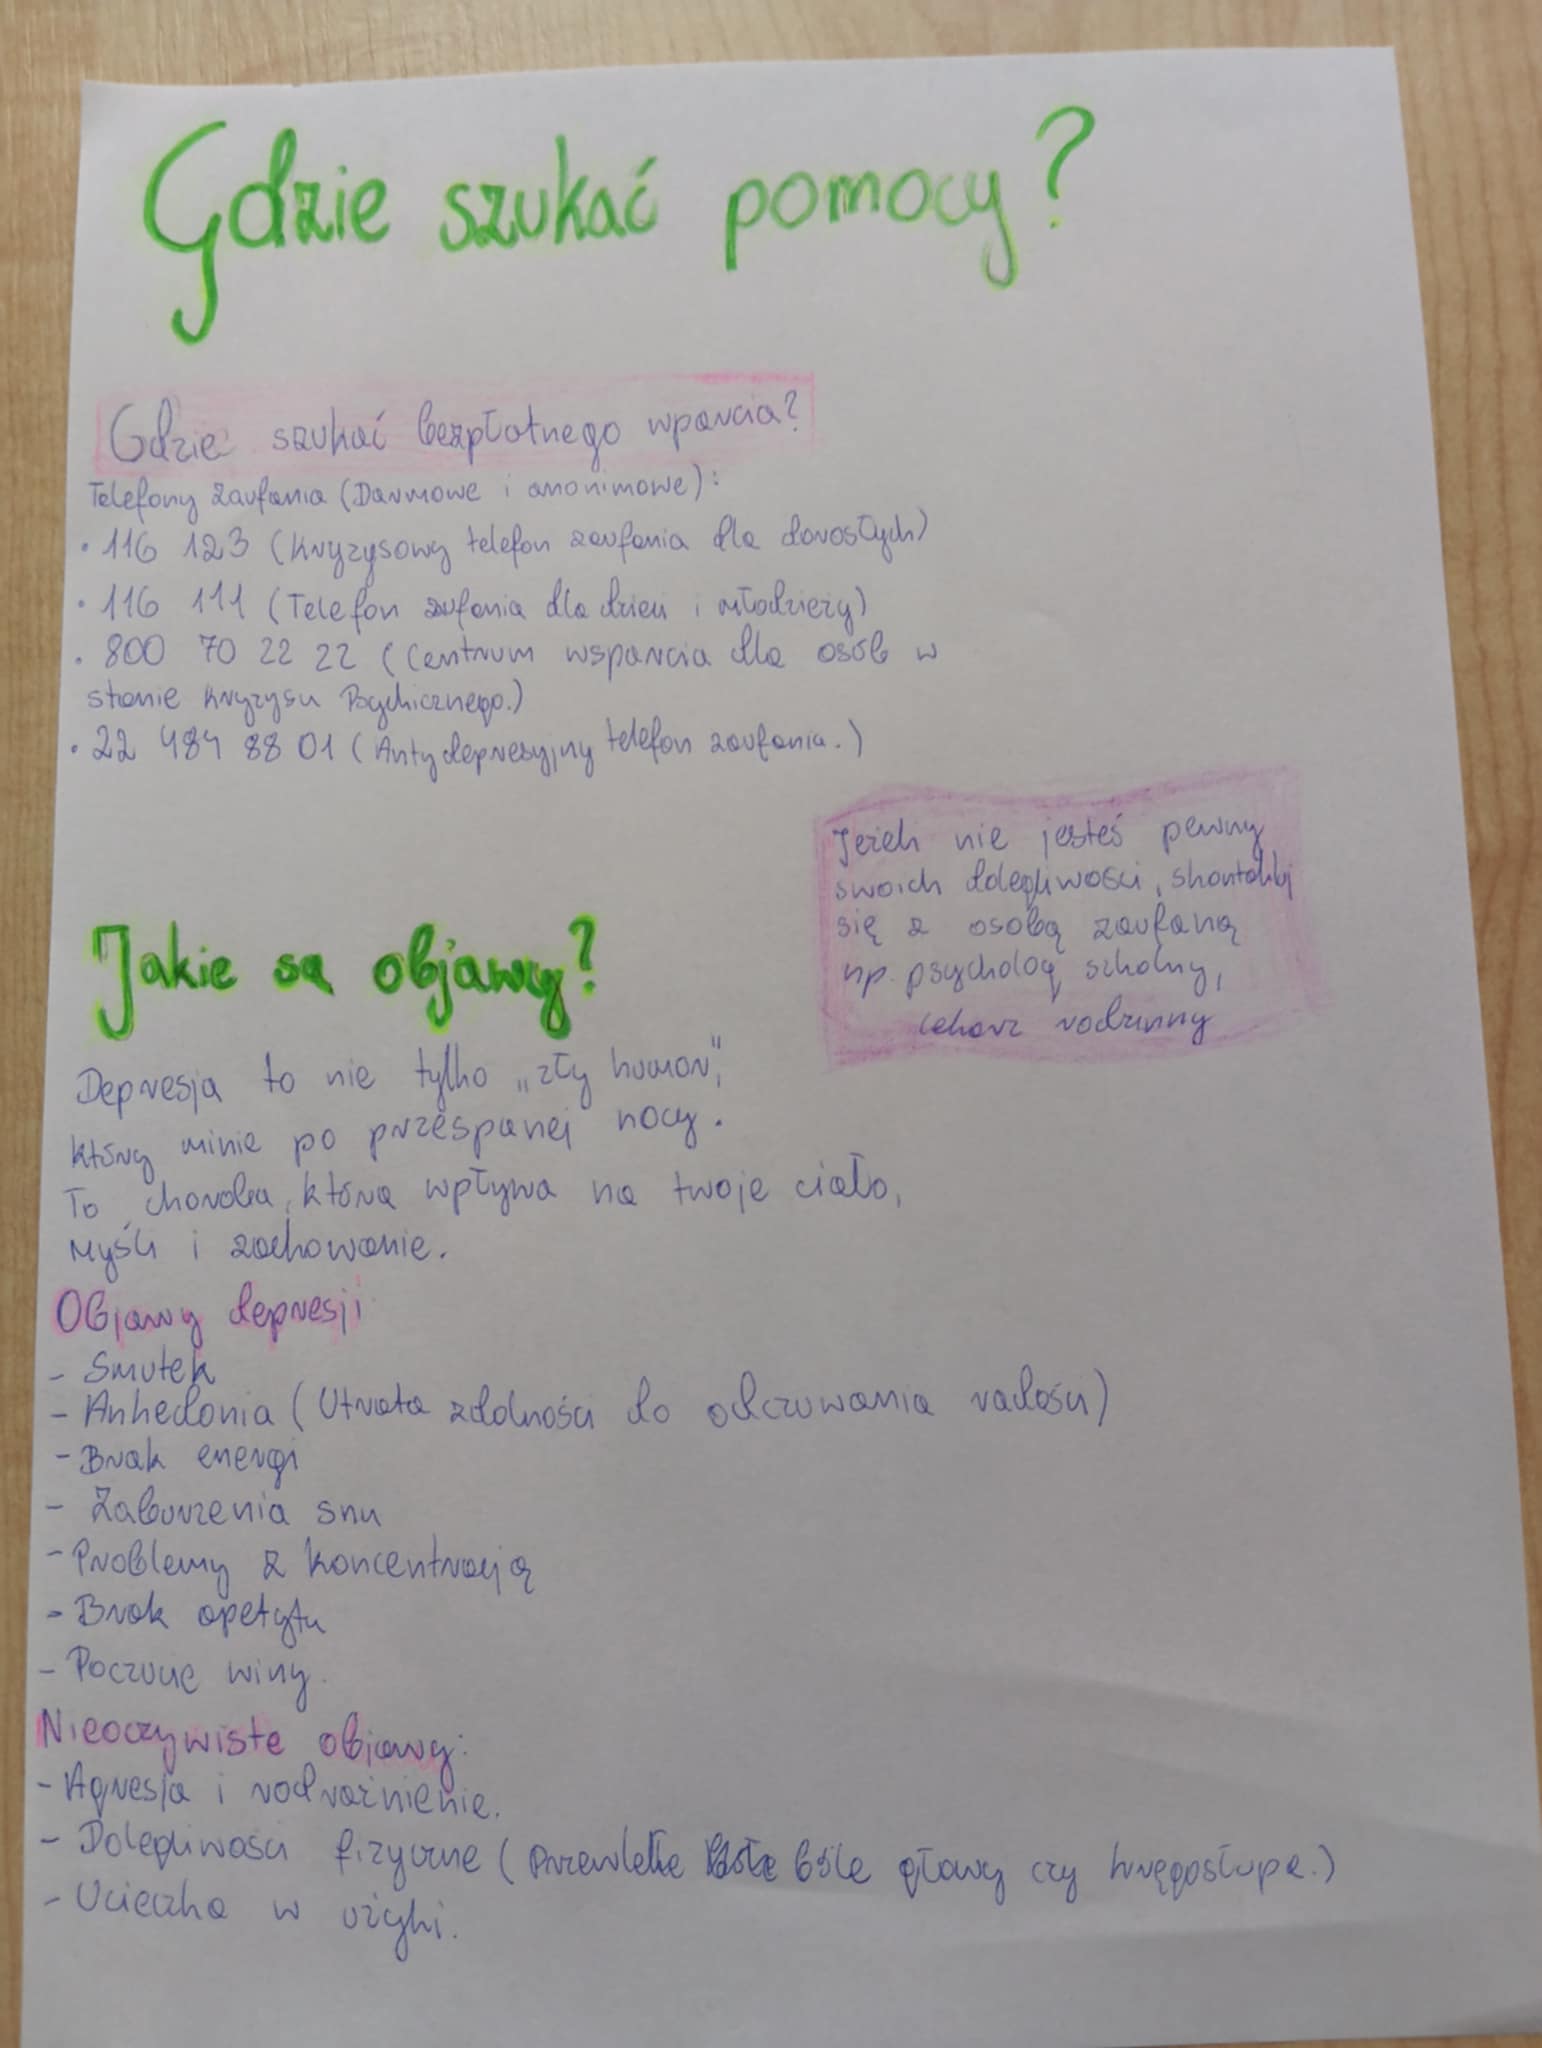 Gdzie szukać pomocy?
Gdzie szukać bezpłatnego wparcia?
Telefony zaufania (Darmowe i anonimowe):
• 116 123 (Kryzysowy telefon zaufania dla dorosłych)
• 116 111 (Telefon zufania dla dzieci i młodzieży)
• 800 70 22 22 (Centrum wsparcia dla osób w
stanie kryzysu Psychicznego.)
• 22 484 88 01 (Antydepresyjny telefon zaufania.)
Jeżeli nie jesteś pewny
swoich dolegliwości, skontaktuj
się z osobą zaufaną
np. psycholog szkolny,
lekarz rodzinny
Jakie są objawy?
Depresja to nie tylko „zły humor",
który minie po przespanej nocy.
To choroba, która wpływa na twoje ciało,
myśli i zachowanie.
Objawy depresji
- Smutek
- Anhedonia (Utrata zdolności do odczuwania radości)
- Brak energi
- Zaburzenia snu
- Problemy z koncentracją
- Brak apetytu
- Poczucie winy.
Nieoczywiste objawy:
- Agresja i rodrażnienie.
- Dolegliwości fizyczne (przewlekłe bóle głowy czy kręgosłupa.)
- Ucieczka w użyki.